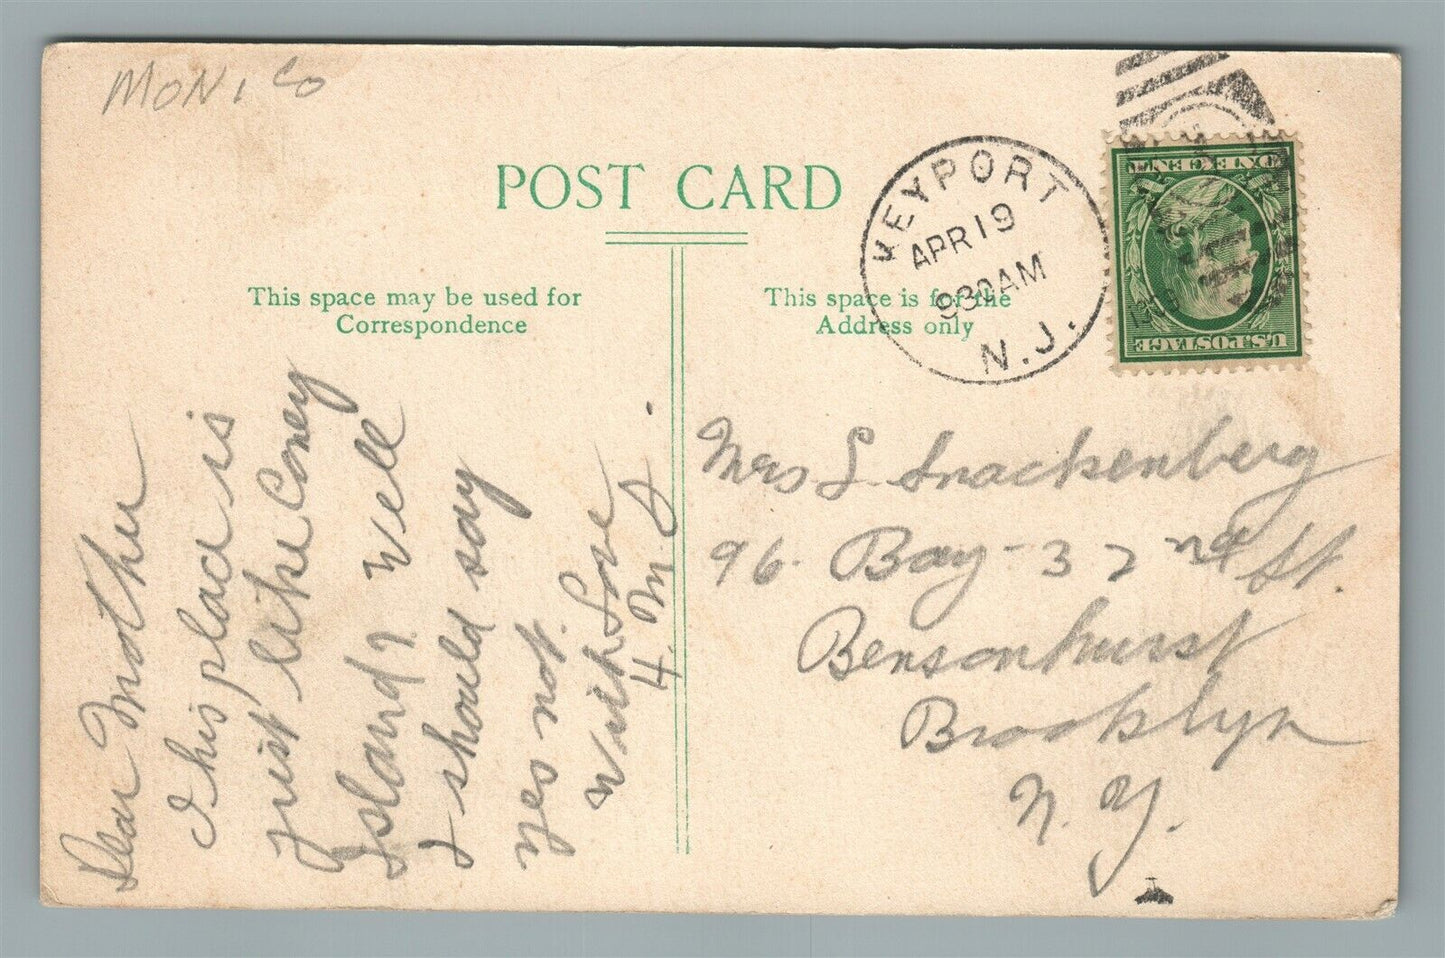 MONICO
POST CARD
This space may be used for
Correspondence
This space is for the
Address only
KEYPORT
APR 19
930AM
N.J.
ONE CENT
U.S.POSTAGE
Dear Mother
This place is
just like Coney
Island? Well
I should say
yes not.
With Love
H. M. S.
Mrs L. Snackenberg
96. Bay - 32 nd St
Bensonhurst
Brooklyn
N. Y.